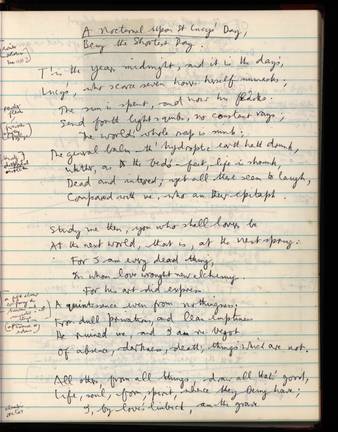 A Nocturnal upon St Lucy's Day,
Being the Shortest Day.
T'is the year's midnight, and it is the day's,
Lucy's, who scarce seven hours herself unmasks,
The sun is spent, and now his flasks
Send forth light squibs, no constant rays;
The world's whole sap is sunk:
The general balm th' hydroptic earth hath drunk,
Whither, as to the beds-feet, life is shrunk,
Dead and interred; yet all these seem to laugh,
Compared with me, who am their epitaph.
Study me then, you who shall lovers be
At the next world, that is, at the next spring:
For I am every dead thing,
In whom love wrought new alchemy.
For his art did express
A quintessence even from nothingness,
From dull privations, and lean emptiness
He ruined me, and I am re-begot
Of absence, darkness, death; things which are not.
All others, from all things, draw all that's good,
Life, soul, form, spirit, whence they being have;
I, by love's limbeck, am the grave